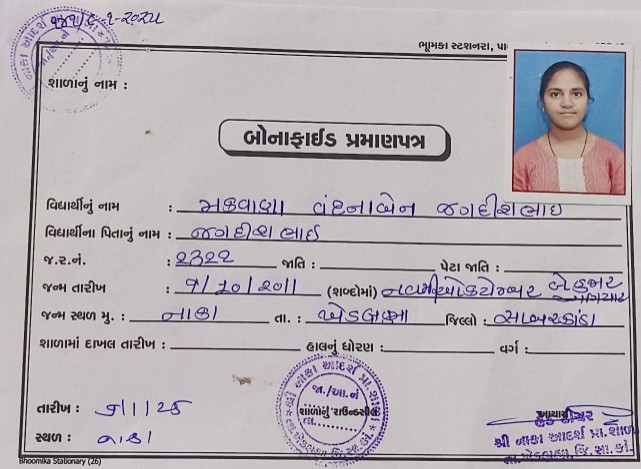 ભૂમિકા સ્ટેશનરી, પા
શાળાનું નામ :
બોનાફાઈડ પ્રમાણપત્ર
વિદ્યાર્થીનું નામ : મકવાણા વંદનાબેન જગદીશભાઇ
વિદ્યાર્થીના પિતાનું નામ : જગદીશભાઈ
જ.ર.નં. : ૨૩૨૨ જાતિ : પેટા જાતિ :
જન્મ તારીખ : ૧/૧૦/૨૦૧૧ (શબ્દોમાં) ઓક્ટોમ્બર બે હજાર
અગિયાર
જન્મ સ્થળ મુ. : નાકા તા. : ખેડબ્રહ્મા જિલ્લો : સાબરકાંઠા
શાળામાં દાખલ તારીખ : હાલનું ધોરણ : વર્ગ :
શ્રી નાકા આદર્શ પ્રા.શાળા
જા./આ.નં
શાળાનું રાઉન્ડસીલ
તારીખ :
આચાર્ય
સ્થળ : નાકા
શ્રી નાકા આદર્શ પ્રા. શાળા
તા.ખેડબ્રહ્મા, જિ. સા. કાં.
Bhoomika Stationary (26)